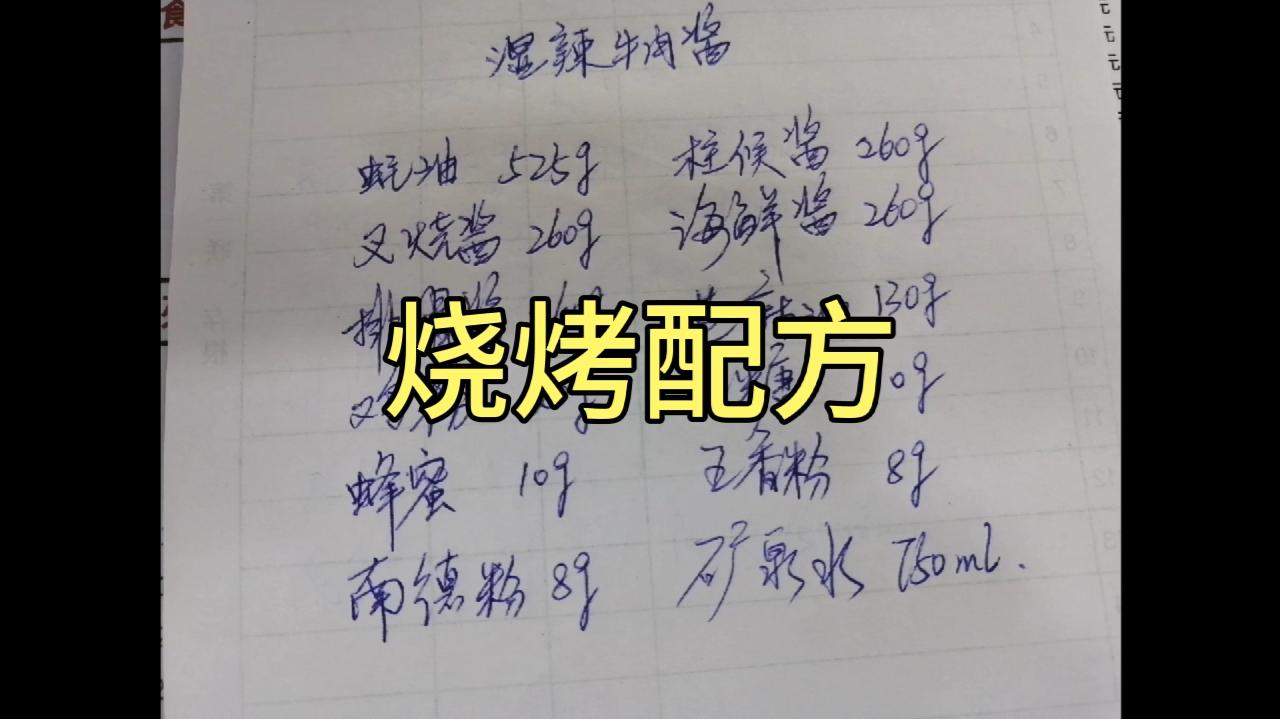 湿辣牛肉酱
蚝油 525g 柱侯酱 260g
叉烧酱 260g 海鲜酱 260g
130g
烧烤配方
0g
蜂蜜 10g 王香粉 8g
南德粉 8g 矿泉水 750ml.